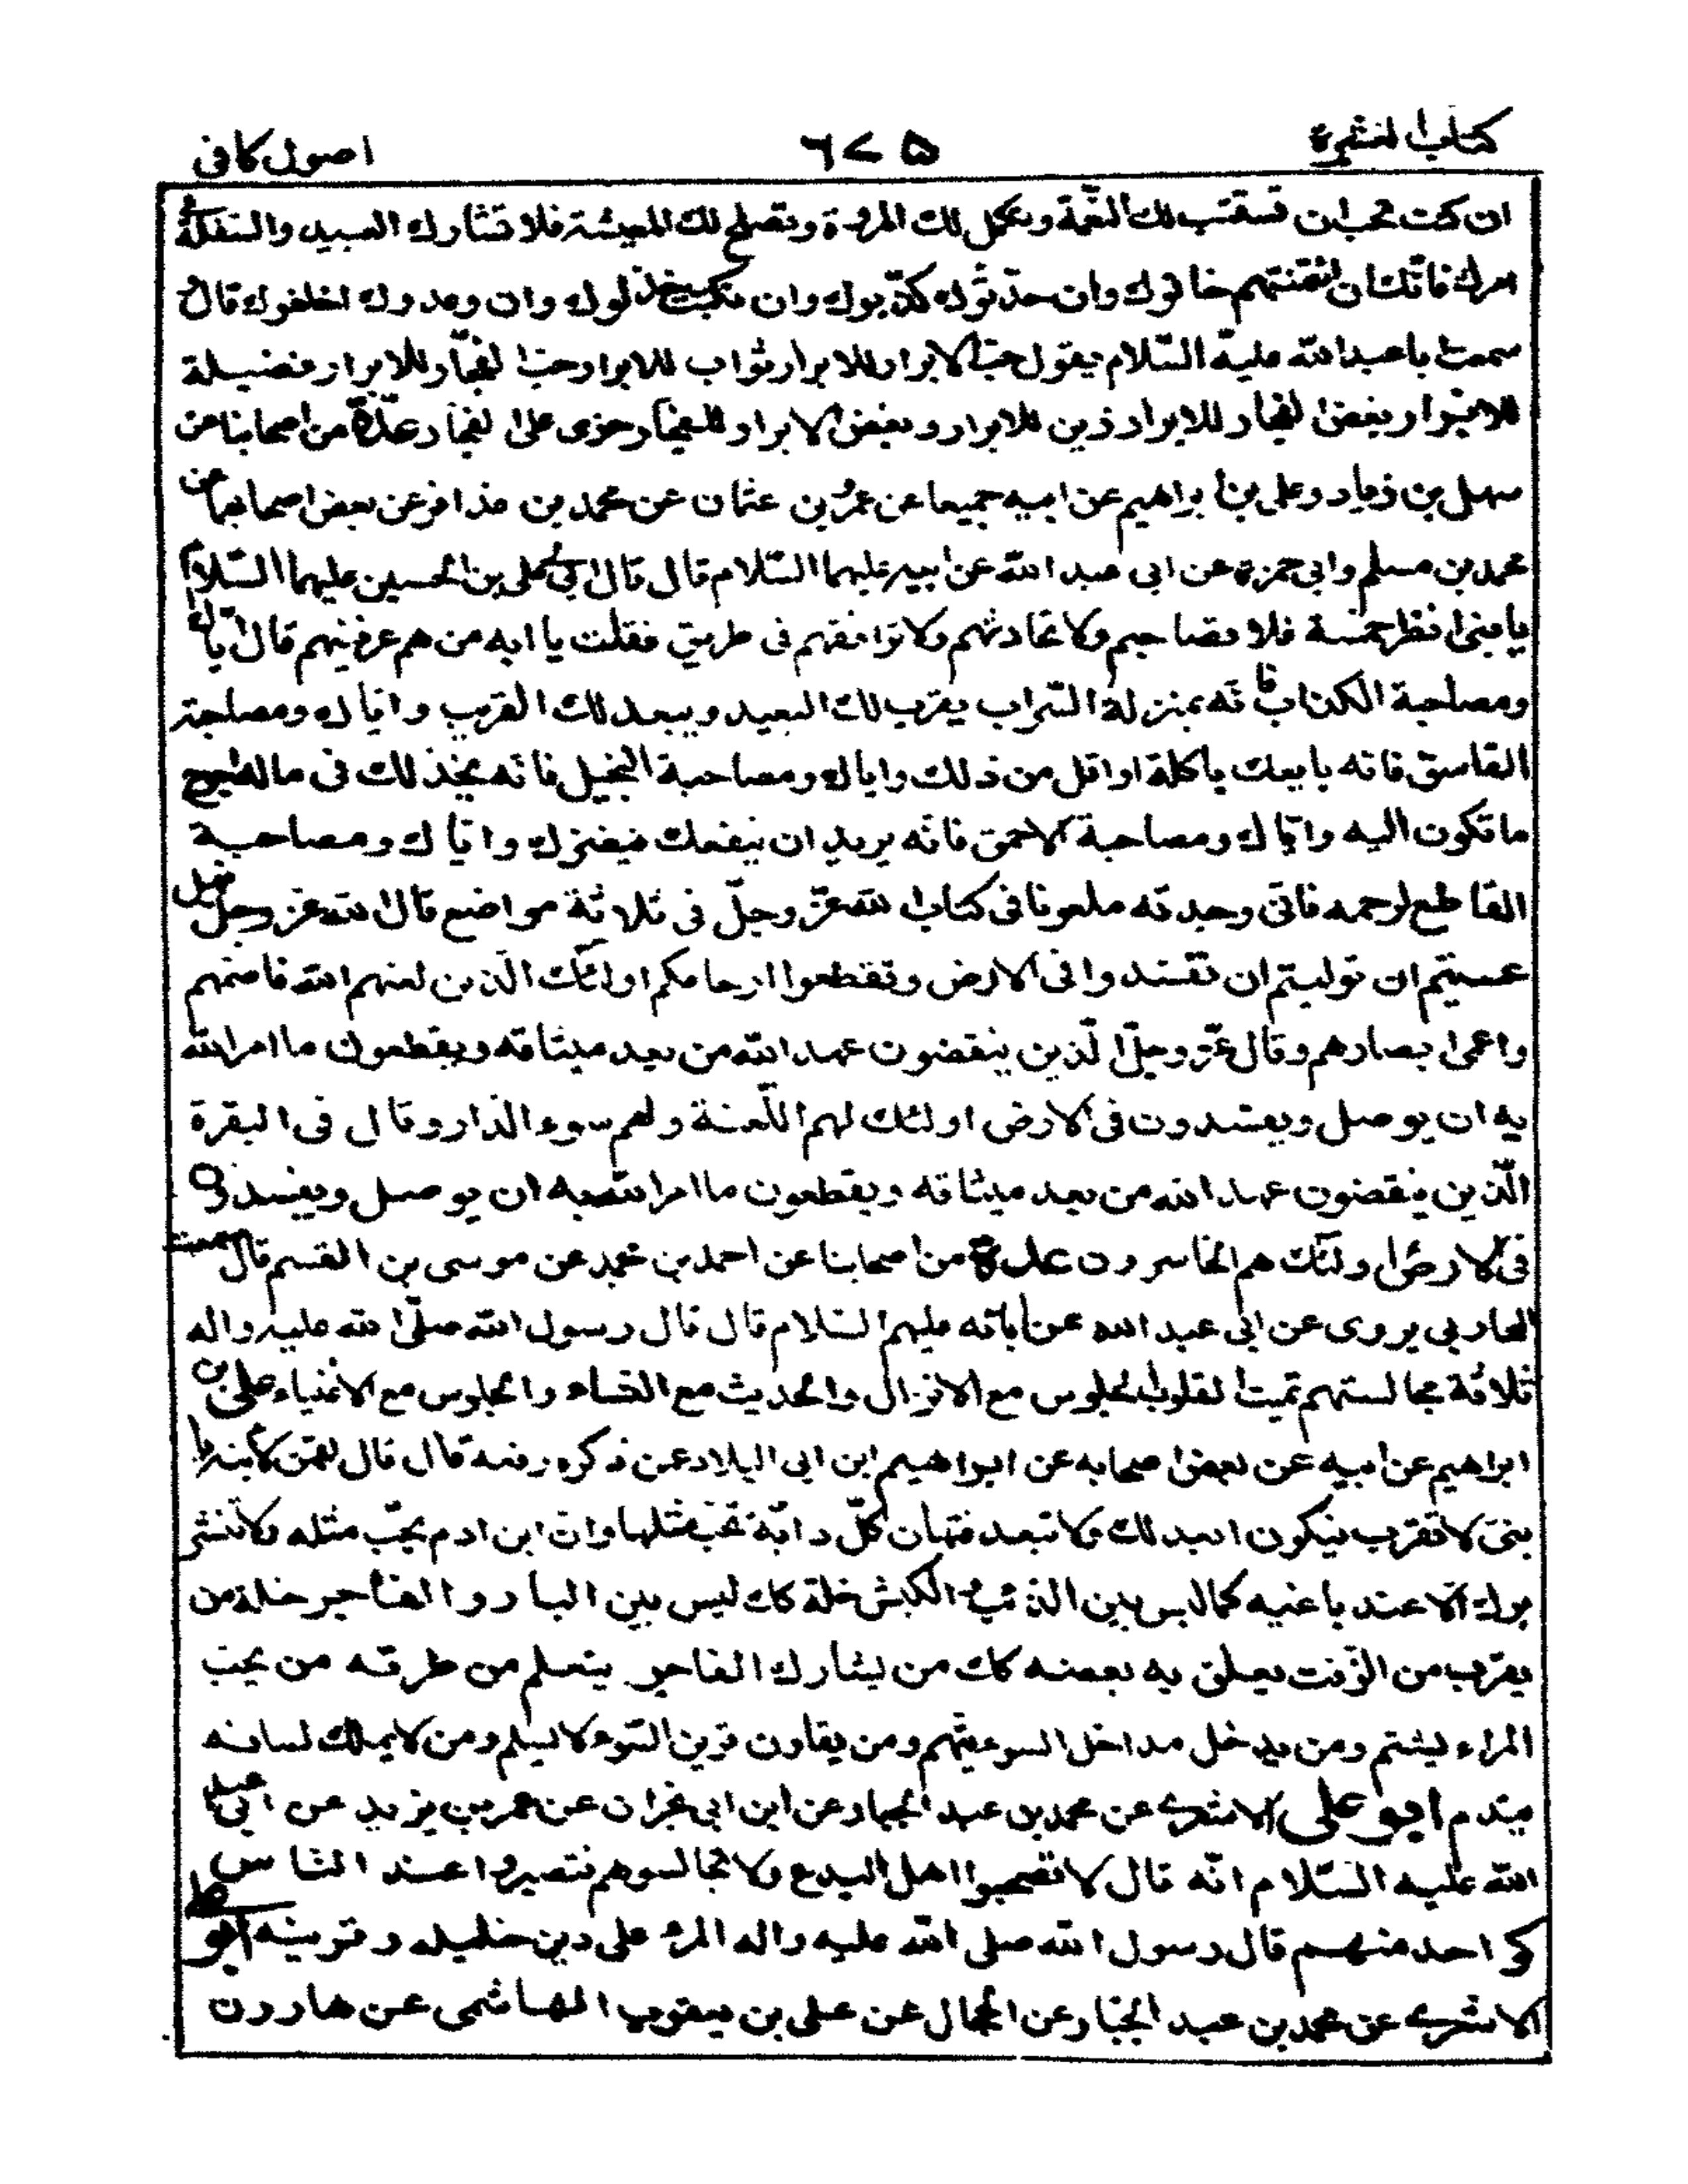 كتاب العشرة ٦٧٥ اصول كافى
ان كنت تحب ان تستتب لك النعمة وتكمل لك المروة وتصلح لك المعيشة فلا تشارك العبيد والسفلة فى
امرك فانك ان ائتمنتهم خانوك وان حدثوك كذبوك وان نكبت خذلوك وان وعدوك اخلفوك قال و
سمعت ابا عبد الله عليه السّلام يقول حب الابرار للابرار ثواب للابرار وحب الفجار للابرار فضيلة
للابرار وبغض الفجار للابرار زين للابرار وبغض الابرار للفجار خزى على الفجار عدّة من اصحابنا عن
سهل بن زياد وعلى بن ابراهيم عن ابيه جميعا عن عمرو بن عثمان عن محمد بن عذافر عن بعض اصحابهما عن
محمد بن مسلم وابى حمزة عن ابى عبد الله عن ابيه عليهما السّلام قال قال لى على بن الحسين عليهما السّلام
يا بنى انظر خمسة فلا تصاحبهم ولا تحادثهم ولا ترافقهم فى طريق فقلت يا ابه من هم عرفنيهم قال اياك
ومصاحبة الكذاب فانه بمنزلة السّراب يقرب لك البعيد ويبعد لك القريب واياك ومصاحبة
الفاسق فانه بايعك باكلة او اقل من ذلك واياك ومصاحبة البخيل فانه يخذلك فى ماله احوج
ما تكون اليه واياك ومصاحبة الاحمق فانه يريد ان ينفعك فيضرك واياك ومصاحبة
القاطع لرحمه فانى وجدته ملعونا فى كتاب الله عزّ وجلّ فى ثلاثة مواضع قال الله عز وجل فهل
عسيتم ان توليتم ان تفسدوا فى الارض وتقطعوا ارحامكم اولئك الذين لعنهم الله فاصمهم
واعمى ابصارهم وقال عزّ وجلّ الّذين ينقضون عهد الله من بعد ميثاقه ويقطعون ما امر الله
به ان يوصل ويفسدون فى الارض اولئك لهم اللّعنة ولهم سوء الدار وقال فى البقرة
الّذين ينقضون عهد الله من بعد ميثاقه ويقطعون ما امر الله به ان يوصل ويفسدون
فى الارض اولئك هم الخاسرون عدة من اصحابنا عن احمد بن محمد عن موسى بن القسم قال سمعت
المحاربى يروى عن ابى عبد الله عن ابائه عليهم السّلام قال قال رسول الله صلّى الله عليه واله
ثلاثة مجالستهم تميت القلوب الجلوس مع الانزال والحديث مع النساء والجلوس مع الاغنياء على بن
ابراهيم عن ابيه عن بعض اصحابه عن ابراهيم ابن ابى البلاد عن ذكره رفعه قال قال لقمن لابنه يا
بنى لا تقرب فيكون ابعد لك ولا تبعد فتهان كلّ دابة تحب مثلها وان ابن ادم يحبّ مثله ولا تنشر
بزك الا عند باغيه كما ليس بين الذئب والكبش خلة كك ليس بين البار والفاجر خلة من
يقرب من الزفت يعلق به بعضه كك من يشارك الفاجر يتعلم من طرقه من يحب
المراء يشتم ومن يدخل مداخل السوء يتهم ومن يقارن قرين السّوء لا يسلم ومن لا يملك لسانه
يندم ابو على الاشعرى عن محمد بن عبد الجبار عن ابن ابى نجران عن عمر بن يزيد عن ابى عبد
الله عليه السّلام انّه قال لا تصحبوا اهل البدع ولا تجالسوهم فتصيروا عند النّاس
كواحد منهم قال رسول الله صلى الله عليه واله المرء على دين خليله وقرينه ابو على
الاشعرى عن محمد بن عبد الجبّار عن الحجال عن على بن يعقوب الهاشمى عن هارون